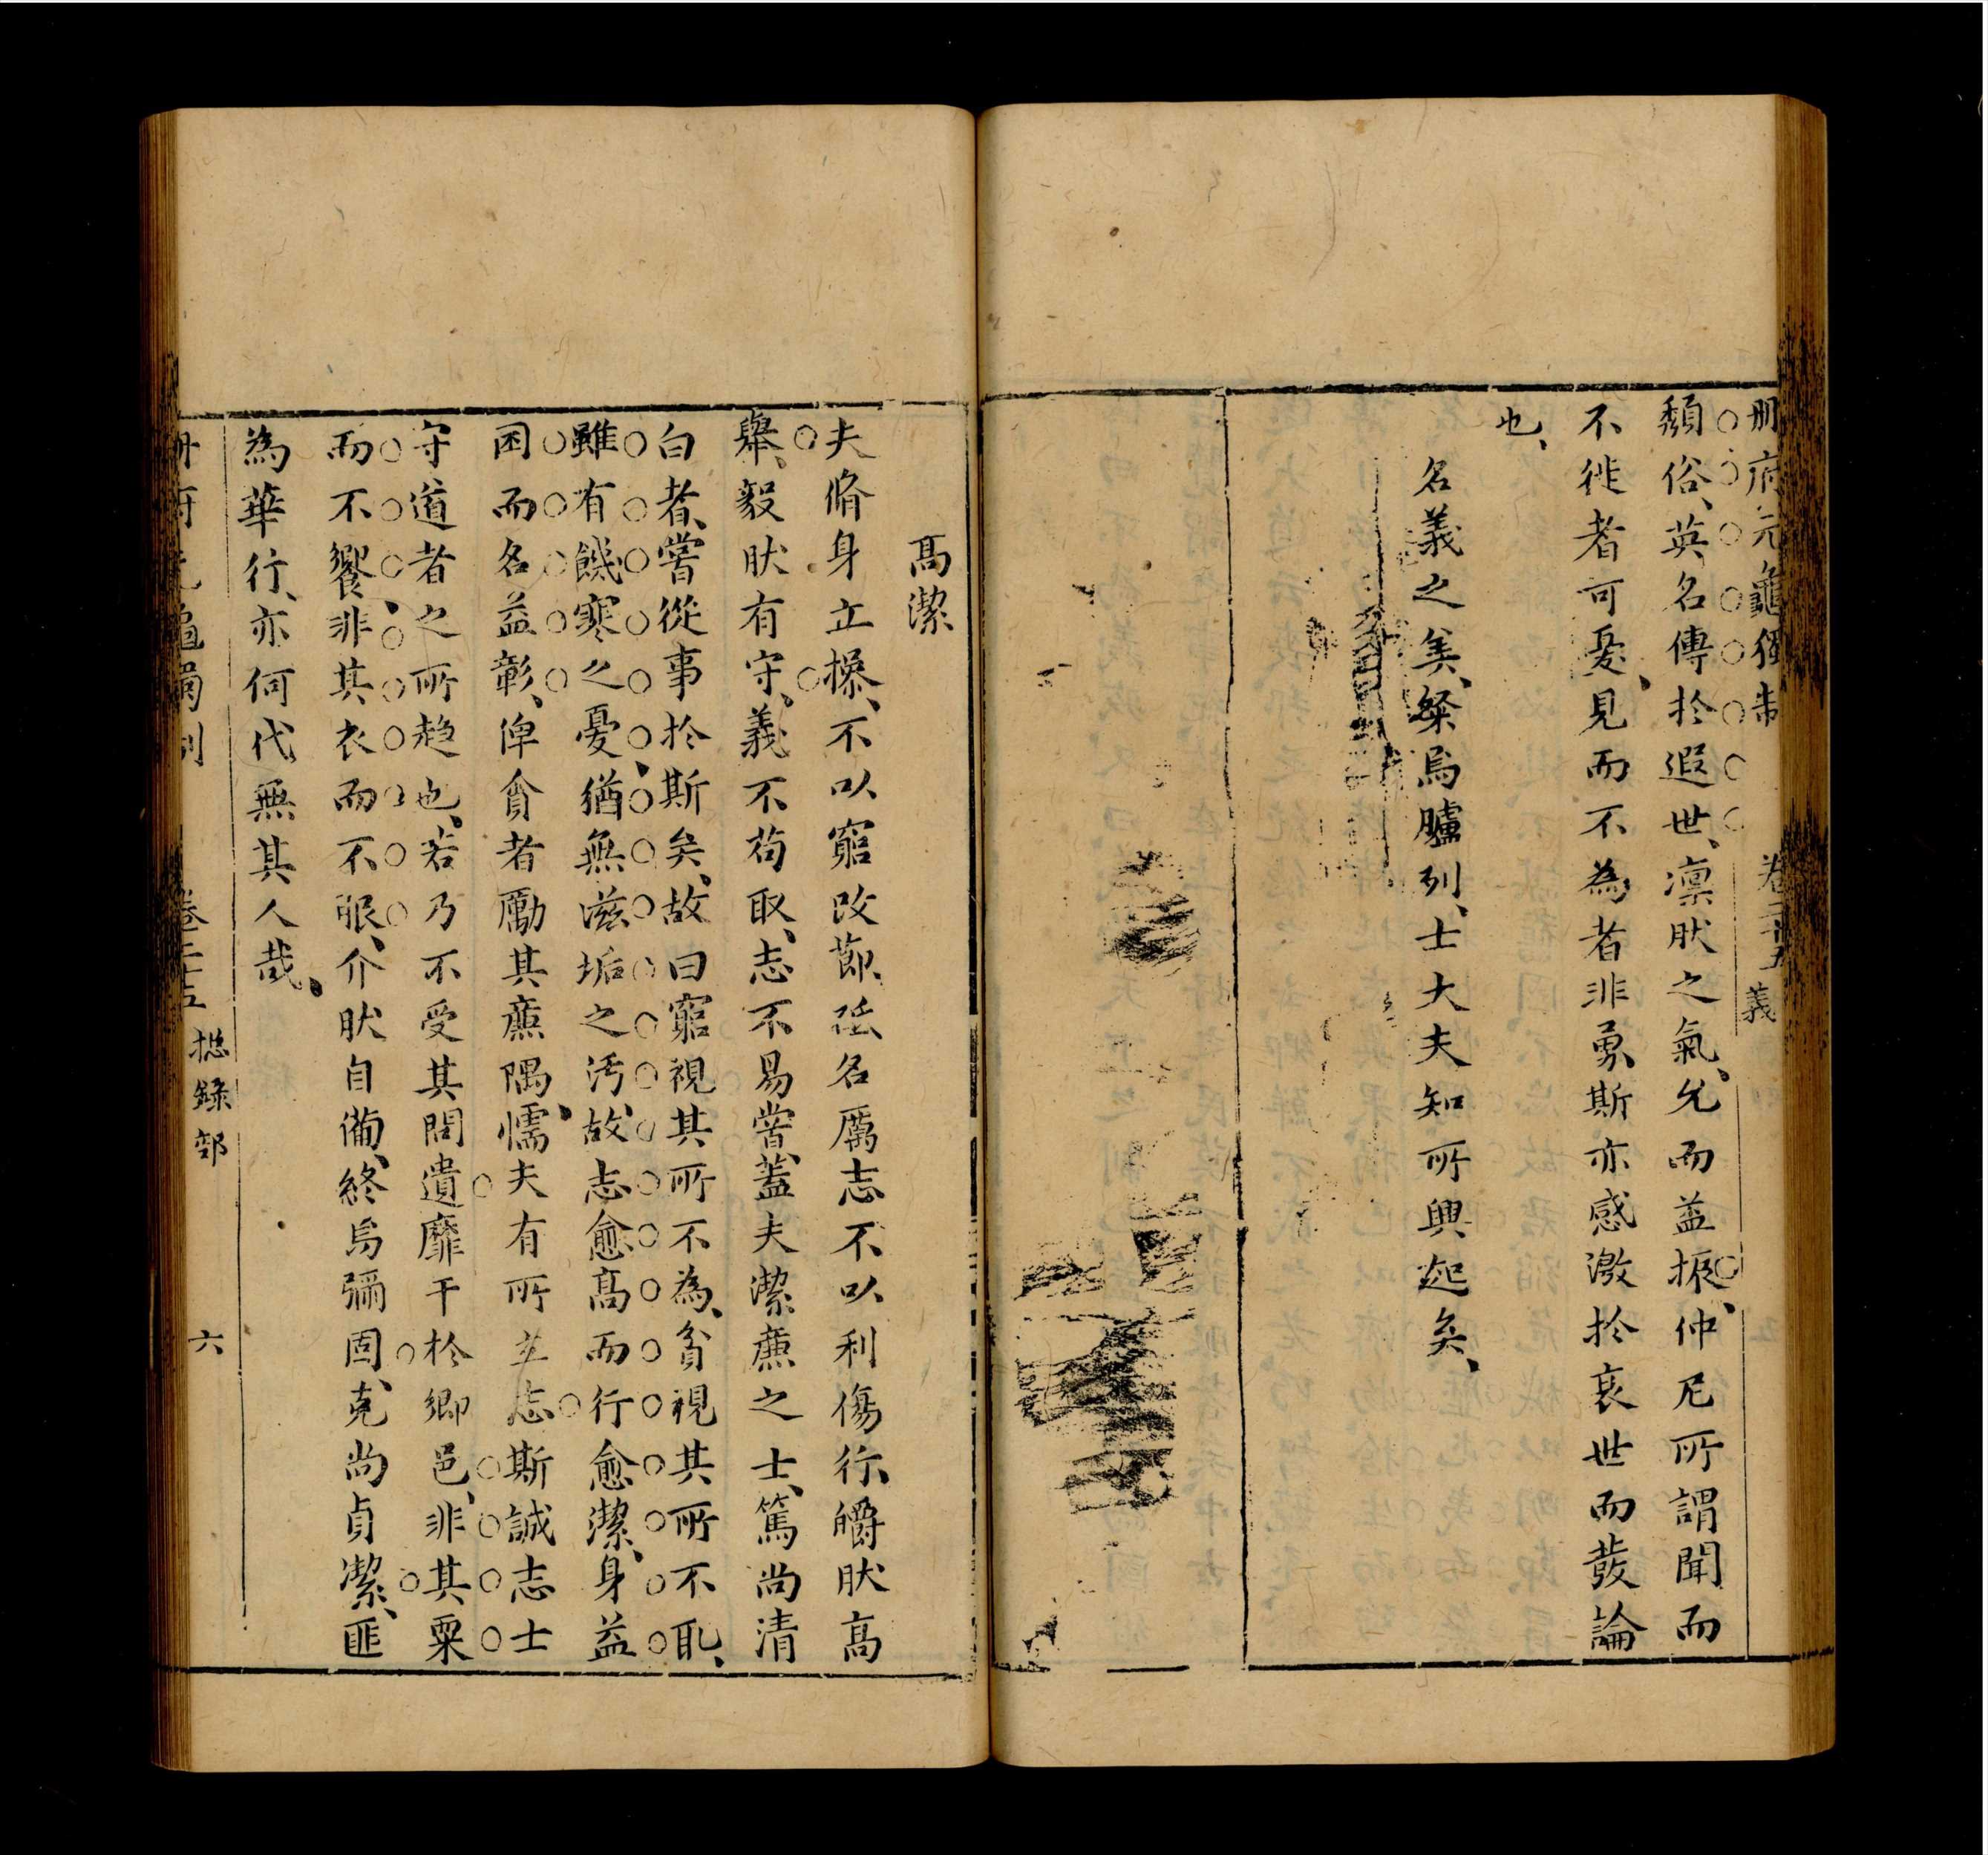 册府元龜獨制　卷二十五　義
頽俗、英名傳於遐世、凛肰之氣、允而益振、仲尼所謂聞而
不徙者可憂、見而不為者非勇、斯亦感激於衰世而發論
也、
名義之美、粲焉臚列、士大夫知所興起矣、
高潔
夫脩身立操、不以窮改節、砥名厲志不以利傷行、皭肰高
舉、毅肰有守、義不苟取、志不易嘗、蓋夫潔廉之士、篤尚清
白者、嘗從事於斯矣、故曰窮視其所不為、貧視其所不取、
雖有饑寒之憂猶無滋垢之汚、故志愈高而行愈潔、身益
困而名益彰、俾貪者勵其廉隅、懦夫有所立志斯誠志士
守道者之所趋也、若乃不受其問遺靡干於鄉邑、非其粟
而不饗、非其衣而不服、介肰自俻、終焉彌固、克尚貞潔、匪
為華行、亦何代無其人哉、
册府元龜獨制　卷二十五　揔錄部　六